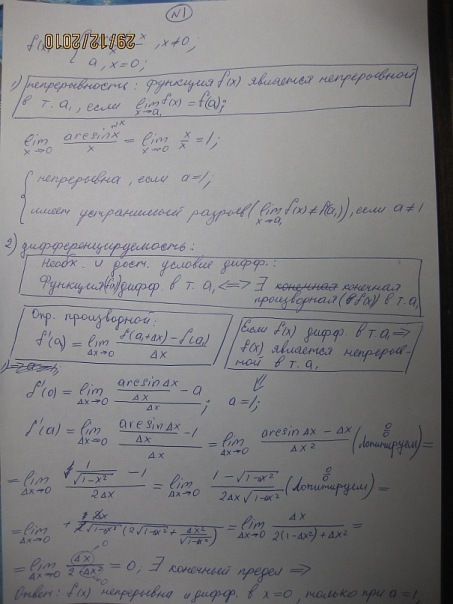 N1
29/12/2010
f(x) = { x , x≠0,
a, x=0;
1) непрерывность: функция f(x) является непрерывной
в т. a₁, если lim x→a₁ f(x) = f(a₁);
lim x→0 arcsin x / x = lim x→0 x/x = 1;
непрерывна, если a=1;
имеет устранимый разрыв (lim x→a₁ f(x) ≠ f(a₁)), если a≠1
2) дифференцируемость:
Необх. и дост. условие дифф.:
Функция f(x) дифф в т. a₁ <=> ∃ конечная конечная
производная (f(x)) в т. a₁
Опр. производной:
f'(a₁) = lim Δx→0 (f(a₁+Δx) - f(a₁)) / Δx
Если f(x) дифф. в т. a₁ =>
f(x) является непрерыв-
ной в т. a₁
f'(0) = lim Δx→0 (arcsin Δx / Δx - a) / Δx ; a=1;
f'(a) = lim Δx→0 (arcsin Δx / Δx - 1) / Δx = lim Δx→0 (arcsin Δx - Δx) / Δx² (0/0 Лопитируем) =
= lim Δx→0 (1/√(1-Δx²) - 1) / 2Δx = lim Δx→0 (1-√(1-Δx²)) / (2Δx√(1-Δx²)) (0/0 Лопитируем) =
= lim Δx→0 = lim Δx→0 Δx / (2(1-Δx²)+Δx²) =
= lim Δx→0 = 0, ∃ конечный предел =>
Ответ: f(x) непрерывна и дифф. в x=0, только при a=1.